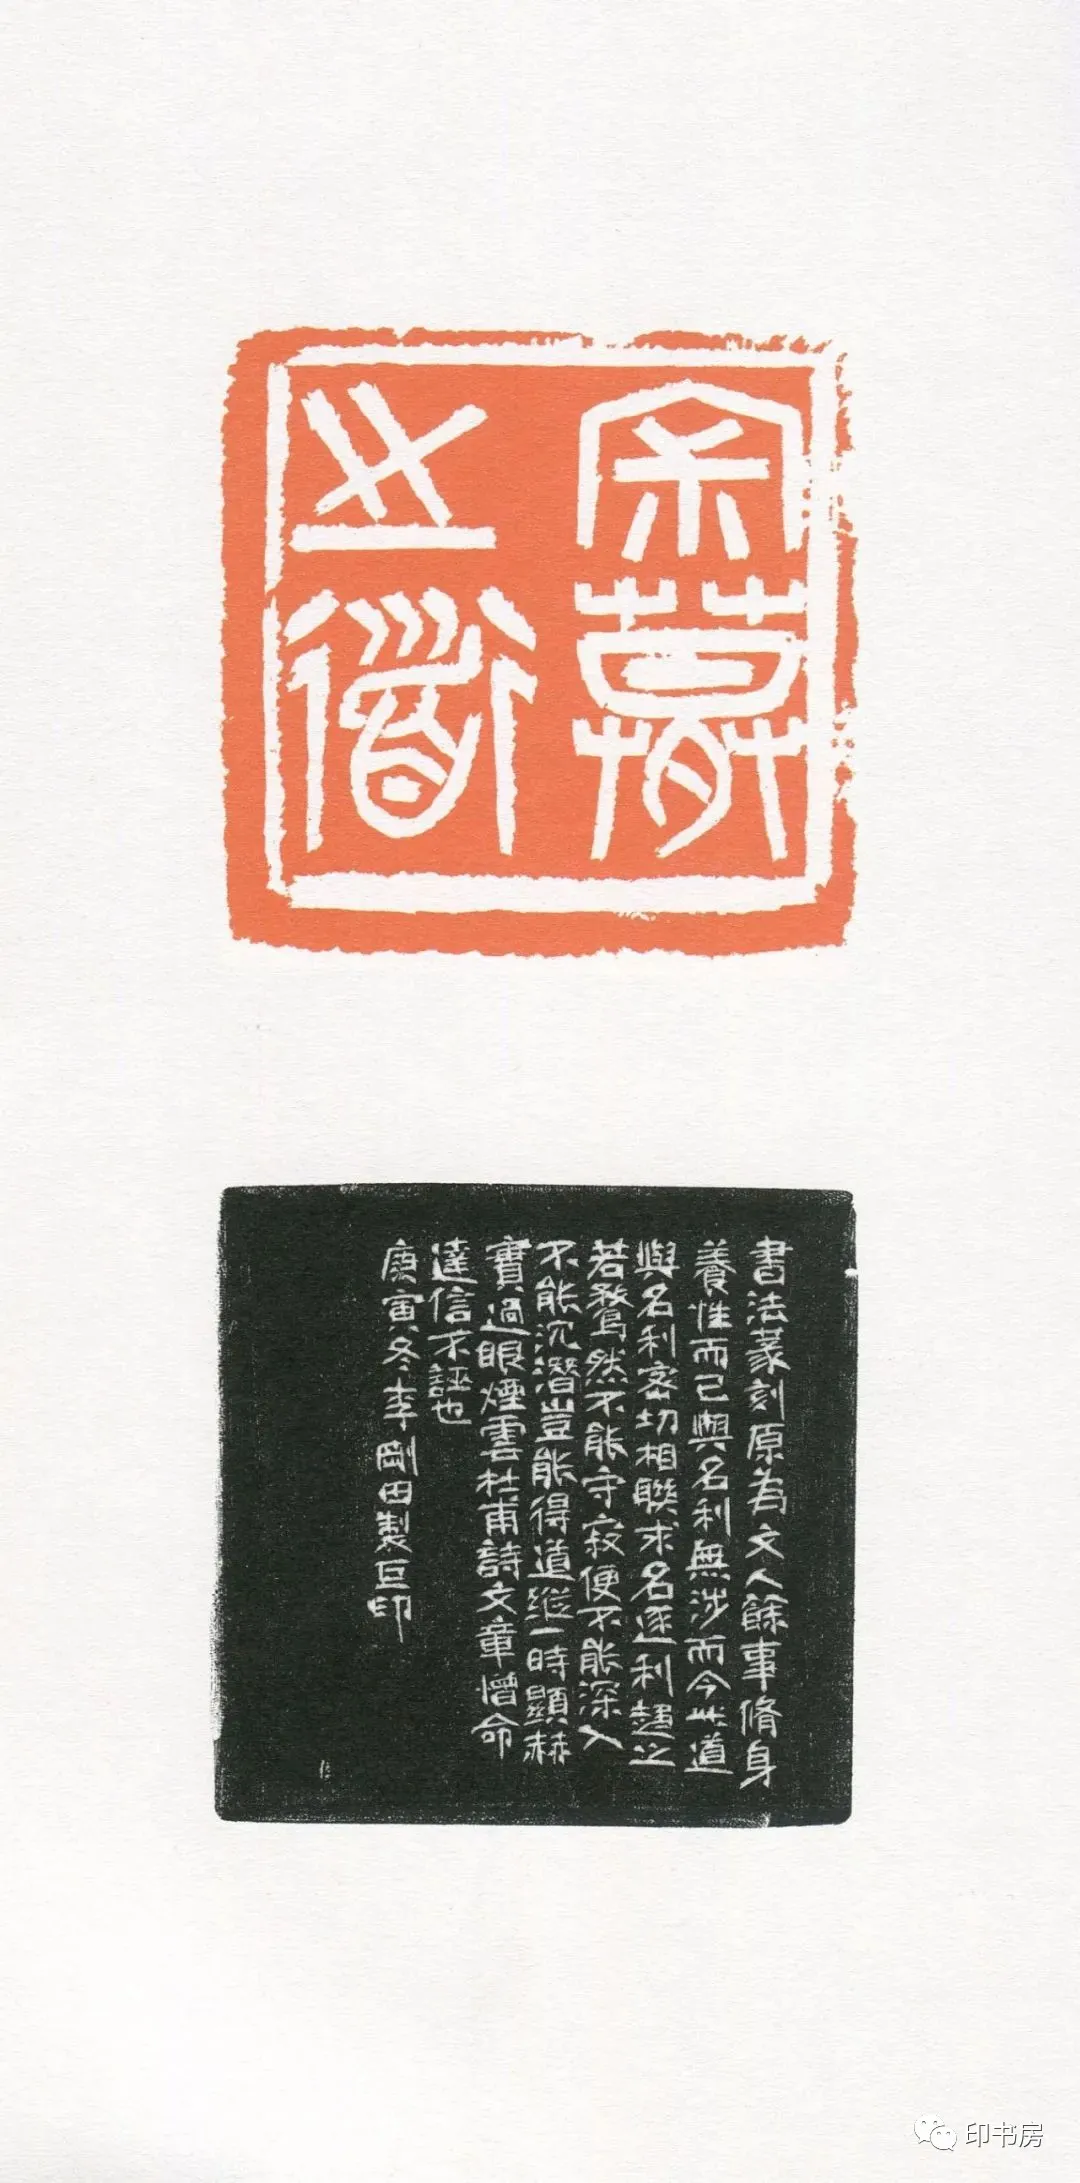 宋募
之道
書法篆刻原為文人餘事脩身
養性而已與名利無涉而今此道
與名利密切相聯求名逐利趨之
若鶩然不能守寂便不能深入
不能沉潛豈能得道縱一時顯赫
實過眼煙雲杜甫詩文章憎命
達信不誣也
庚寅冬李剛田製巨印
印书房